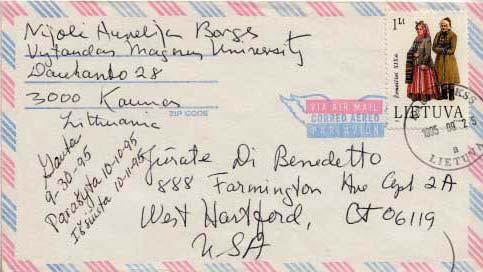 Nijolė Aurelija Borges
Vytandas Magnus University
Daukanto 28
3000 Kaunas
Lithuania
ZIP CODE
1 Lt
LIETUVA
VIA AIR MAIL
CORREO AEREO
PAR AVION
1995 09 25
a
LIETUVA
Gauta
9-30-95
Parašyta 10-10-95
Išsiųsta 10-11-95
Jūratė Di Benedetto
888 Farmington Ave Apt 2A
West Hartford, CT 06119
USA